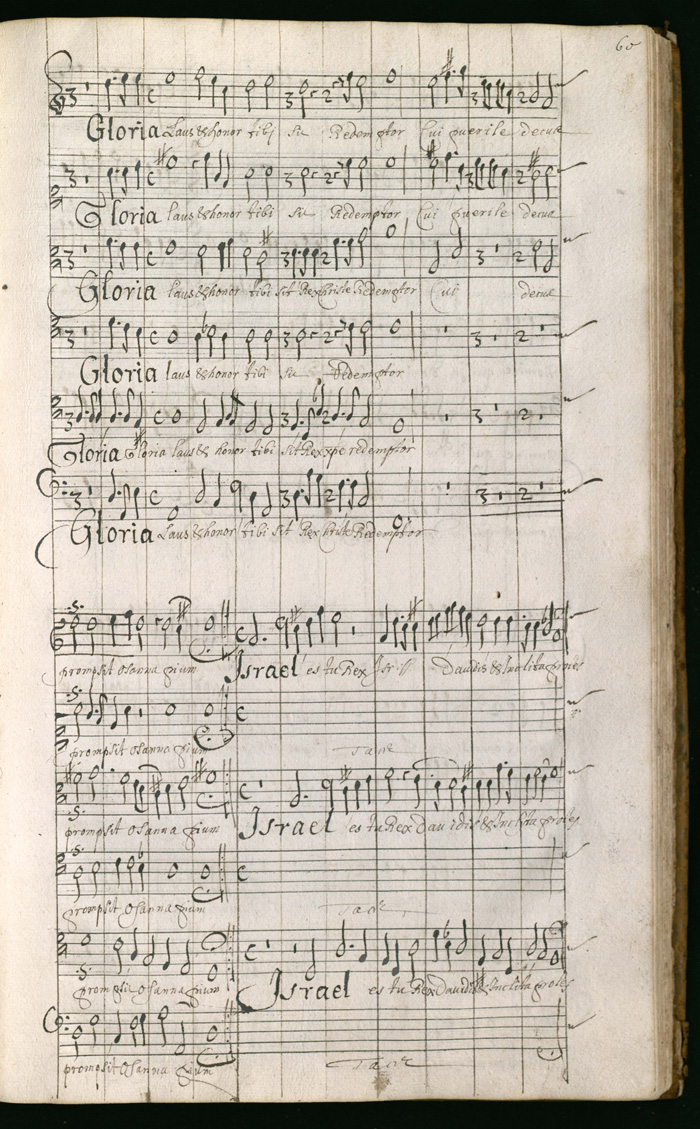 60
Gloria Laus & honor tibi su Redemptor Cui puerile decus
Gloria laus & honor tibi su Redemptor Cui puerile decus
Gloria laus & honor tibi sit Rex Christe Redemptor Cui decus
Gloria laus & honor tibi su Redemptor
Gloria Gloria laus & honor tibi sit Rex xpe redemptor
Gloria Laus & honor tibi sit Rex Christe Redemptor
prompsit Osanna pium Israel es tu Rex Davidis & Inclita proles
prompsit Osanna pium Tace
prompsit Osanna pium Israel es tu Rex Davidis & Inclita proles
prompsit Osanna pium Tace
prompsit Osanna pium Israel es tu Rex Davidis & Inclita proles
prompsit Osanna pium Tace